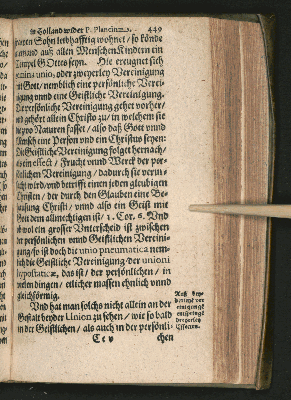 in Holland wider P. Plancium. 449
waren Sohn leibhafftig wohnet / so könde
niemand auß allen Menschen Kindern ein
Tempel Gottes seyn. Hie ereugnet sich
unio, oder zweyerley Vereinigung
mit Gott / nemblich eine persönliche Verei-
nigung vnnd eine Geistliche Vereinigung.
Die persönliche Vereinigung gehet vorher /
vnd gehört allein Christo zu / in welchem sie
zwo Naturen fasset / also daß Gott vnnd
Mensch eine Person vnd ein Christus seyen:
Die Geistliche Vereinigung folget hernach /
als ein effect / Frucht vnnd Werck der per-
sönlichen Vereinigung / dadurch sie verur-
sacht wird / vnd betrifft einen jeden gleubigen
Christen / der durch den Glauben eine Be-
hausung Christi / vnnd also ein Geist mit
Gott dem allmechtigen ist / 1. Cor. 6. Vnd
ob wol ein grosser Vnterscheid ist zwischen
der persönlichen vnnd Geistlichen Vereini-
gung / so ist doch die unio pneumatica nem-
lich die Geistliche Vereinigung der unioni
hypostaticæ, das ist / der persönlichen / in
vielen dingen / etlicher massen ehnlich vnnd
gleichförmig.
Vnd hat man solchs nicht allein an der
Gestalt beyder Union zu sehen / wie so bald
in der Geistlichen / als auch in der persönli-
Auß bey-
derseits ver
einigungē
entspringt
dreyerley
Effectus.
Ee v chen